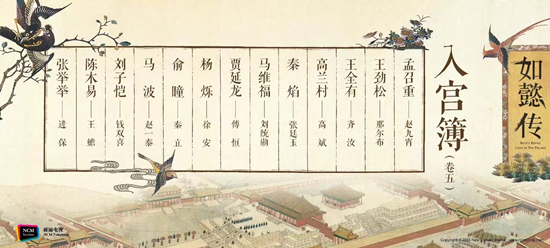 如懿传
入宫簿
(卷五)
孟召重——赵九宵
王劲松——那尔布
王全有——齐汝
高兰村——高斌
秦焰——张廷玉
马维福——刘统勋
贾延龙——傅恒
杨烁——徐安
俞瞳——秦立
马波——赵一泰
刘子恺——钱双喜
陈木易——王蟾
张举举——进保
NCM
新丽电视